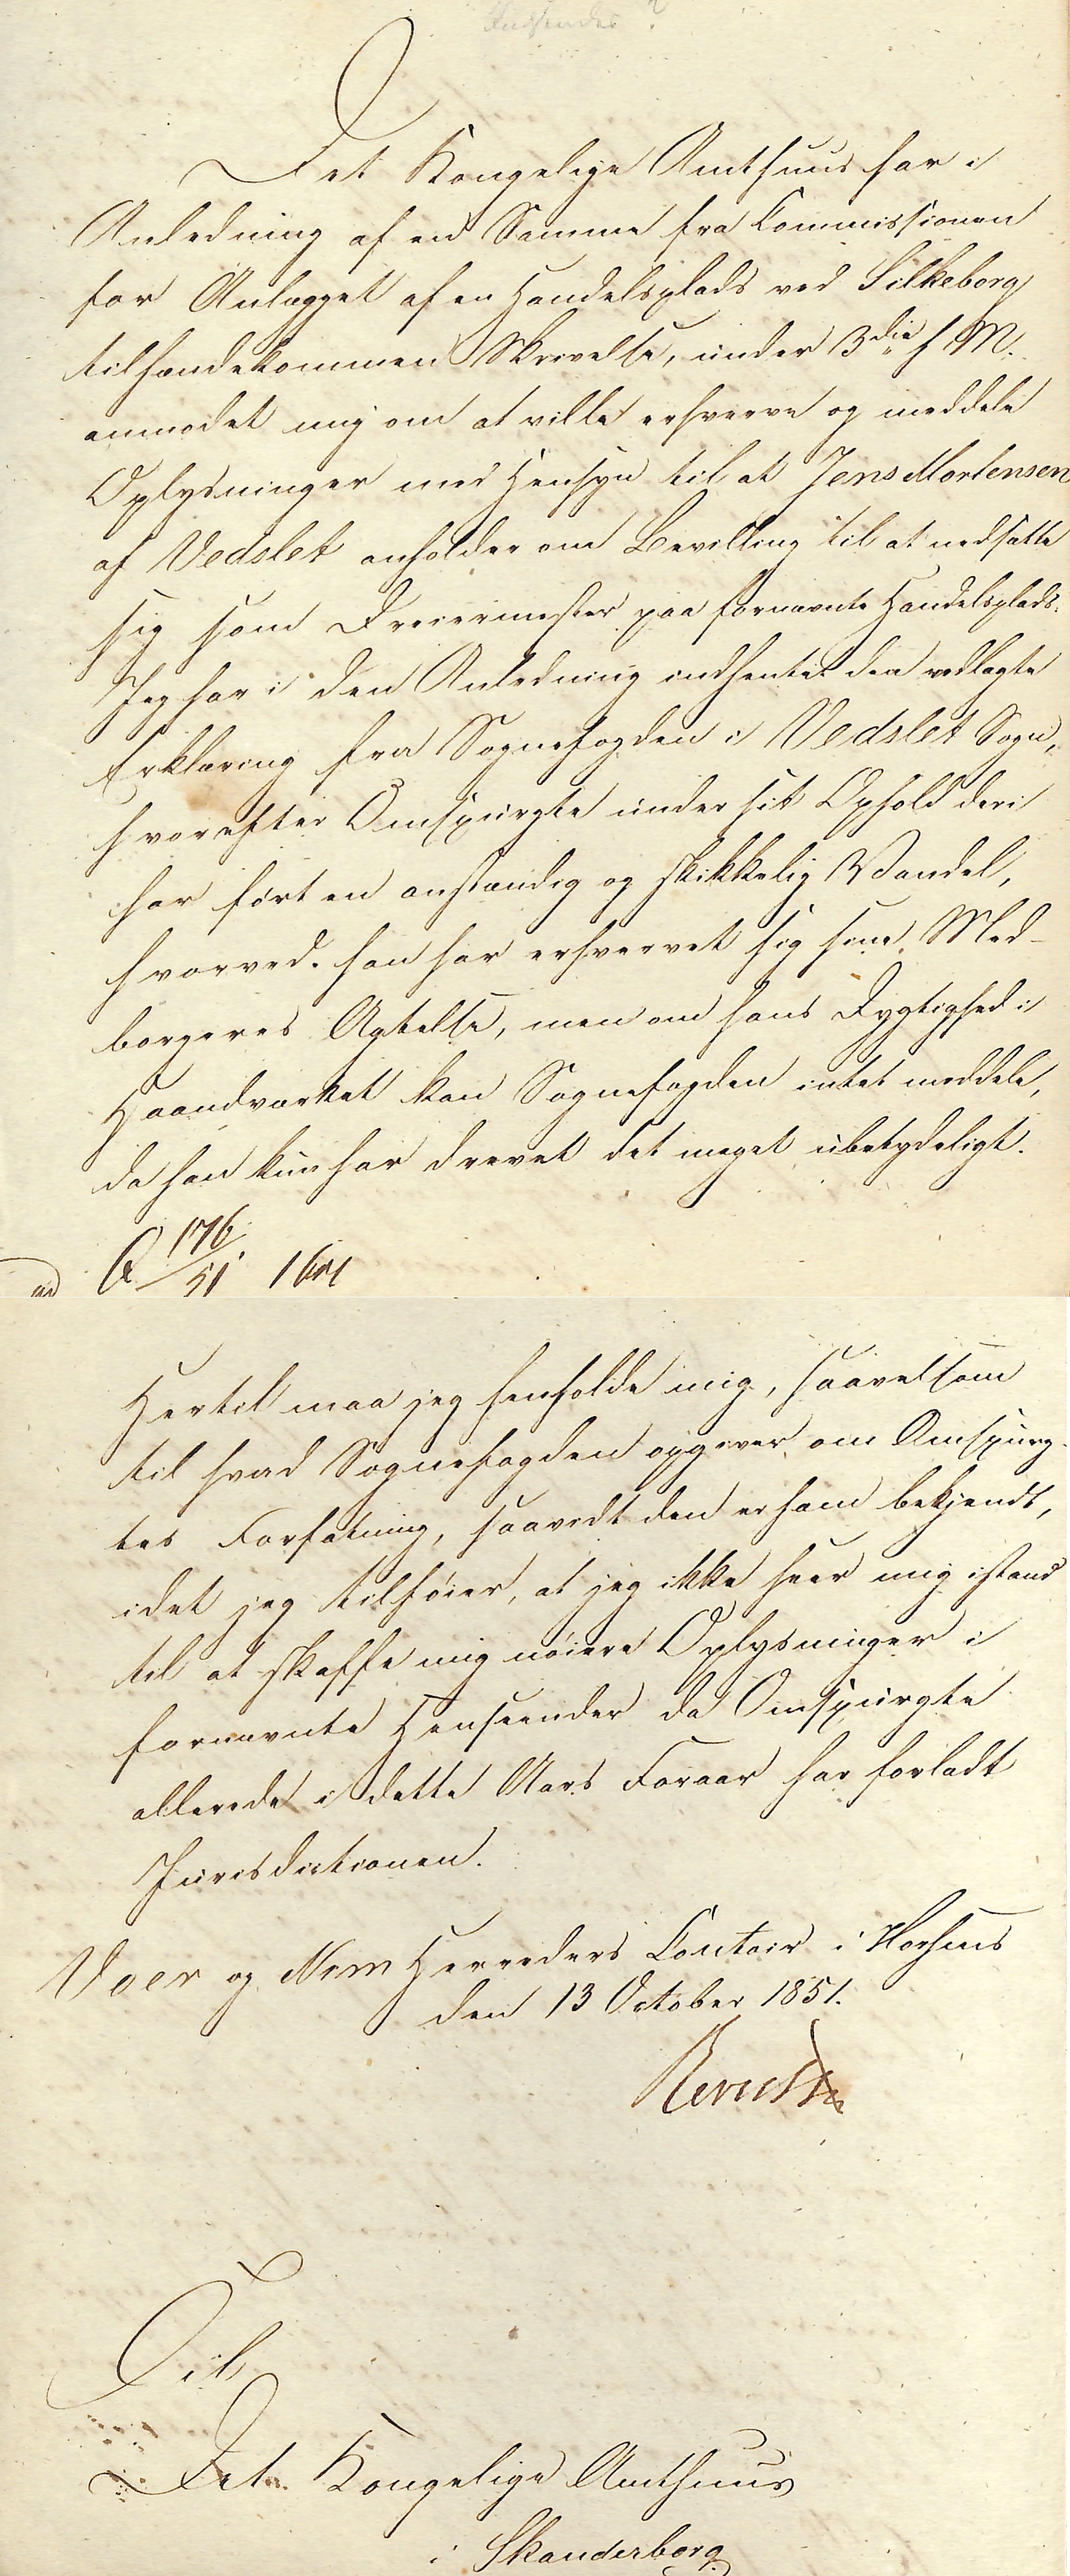 Indsendes?
Det Kongelige Amthuus har i
Anledning af en Samme fra Commissionen
for Anlægget af en Handelsplads ved Silkeborg
tilhændekommen Skrivelse, under 3die h M.
anmodet mig om at ville erhverve og meddele
Oplysninger med Hensyn til at Jens Mortensen
af Vedslet anholder om Bevilling til at nedsætte
sig som Dreiermester paa fornævnte Handelsplads.
Jeg har i den Anledning indhentet den vedlagte
Erklæring fra Sognefogden i Vedslet Sogn,
hvorefter Omspurgte under sit Ophold deri
har ført en anstændig og skikkelig Vandel,
hvorved han har erhvervet sig sine Med-
borgeres Agtelse, men om hans Dygtighed i
Haandværket kan Sognefogden intet meddele,
da han kun har drevet det meget ubetydeligt.
176
51
Hertil maa jeg henholde mig, saavelsom
til hvad Sognefogden opgiver om Omspurg-
tes Forfatning, saavidt den er ham bekjendt,
idet jeg tilføier, at jeg ikke seer mig istand
til at skaffe mig nøiere Oplysninger i
fornævnte Henseender da Omspurgte
allerede i dette Aars Foraar har forladt
Jurisdictionen.
Voer og Nim Herreders Contoir i Horsens
den 13 October 1851.
Til
Det Kongelige Amthuus
i Skanderborg